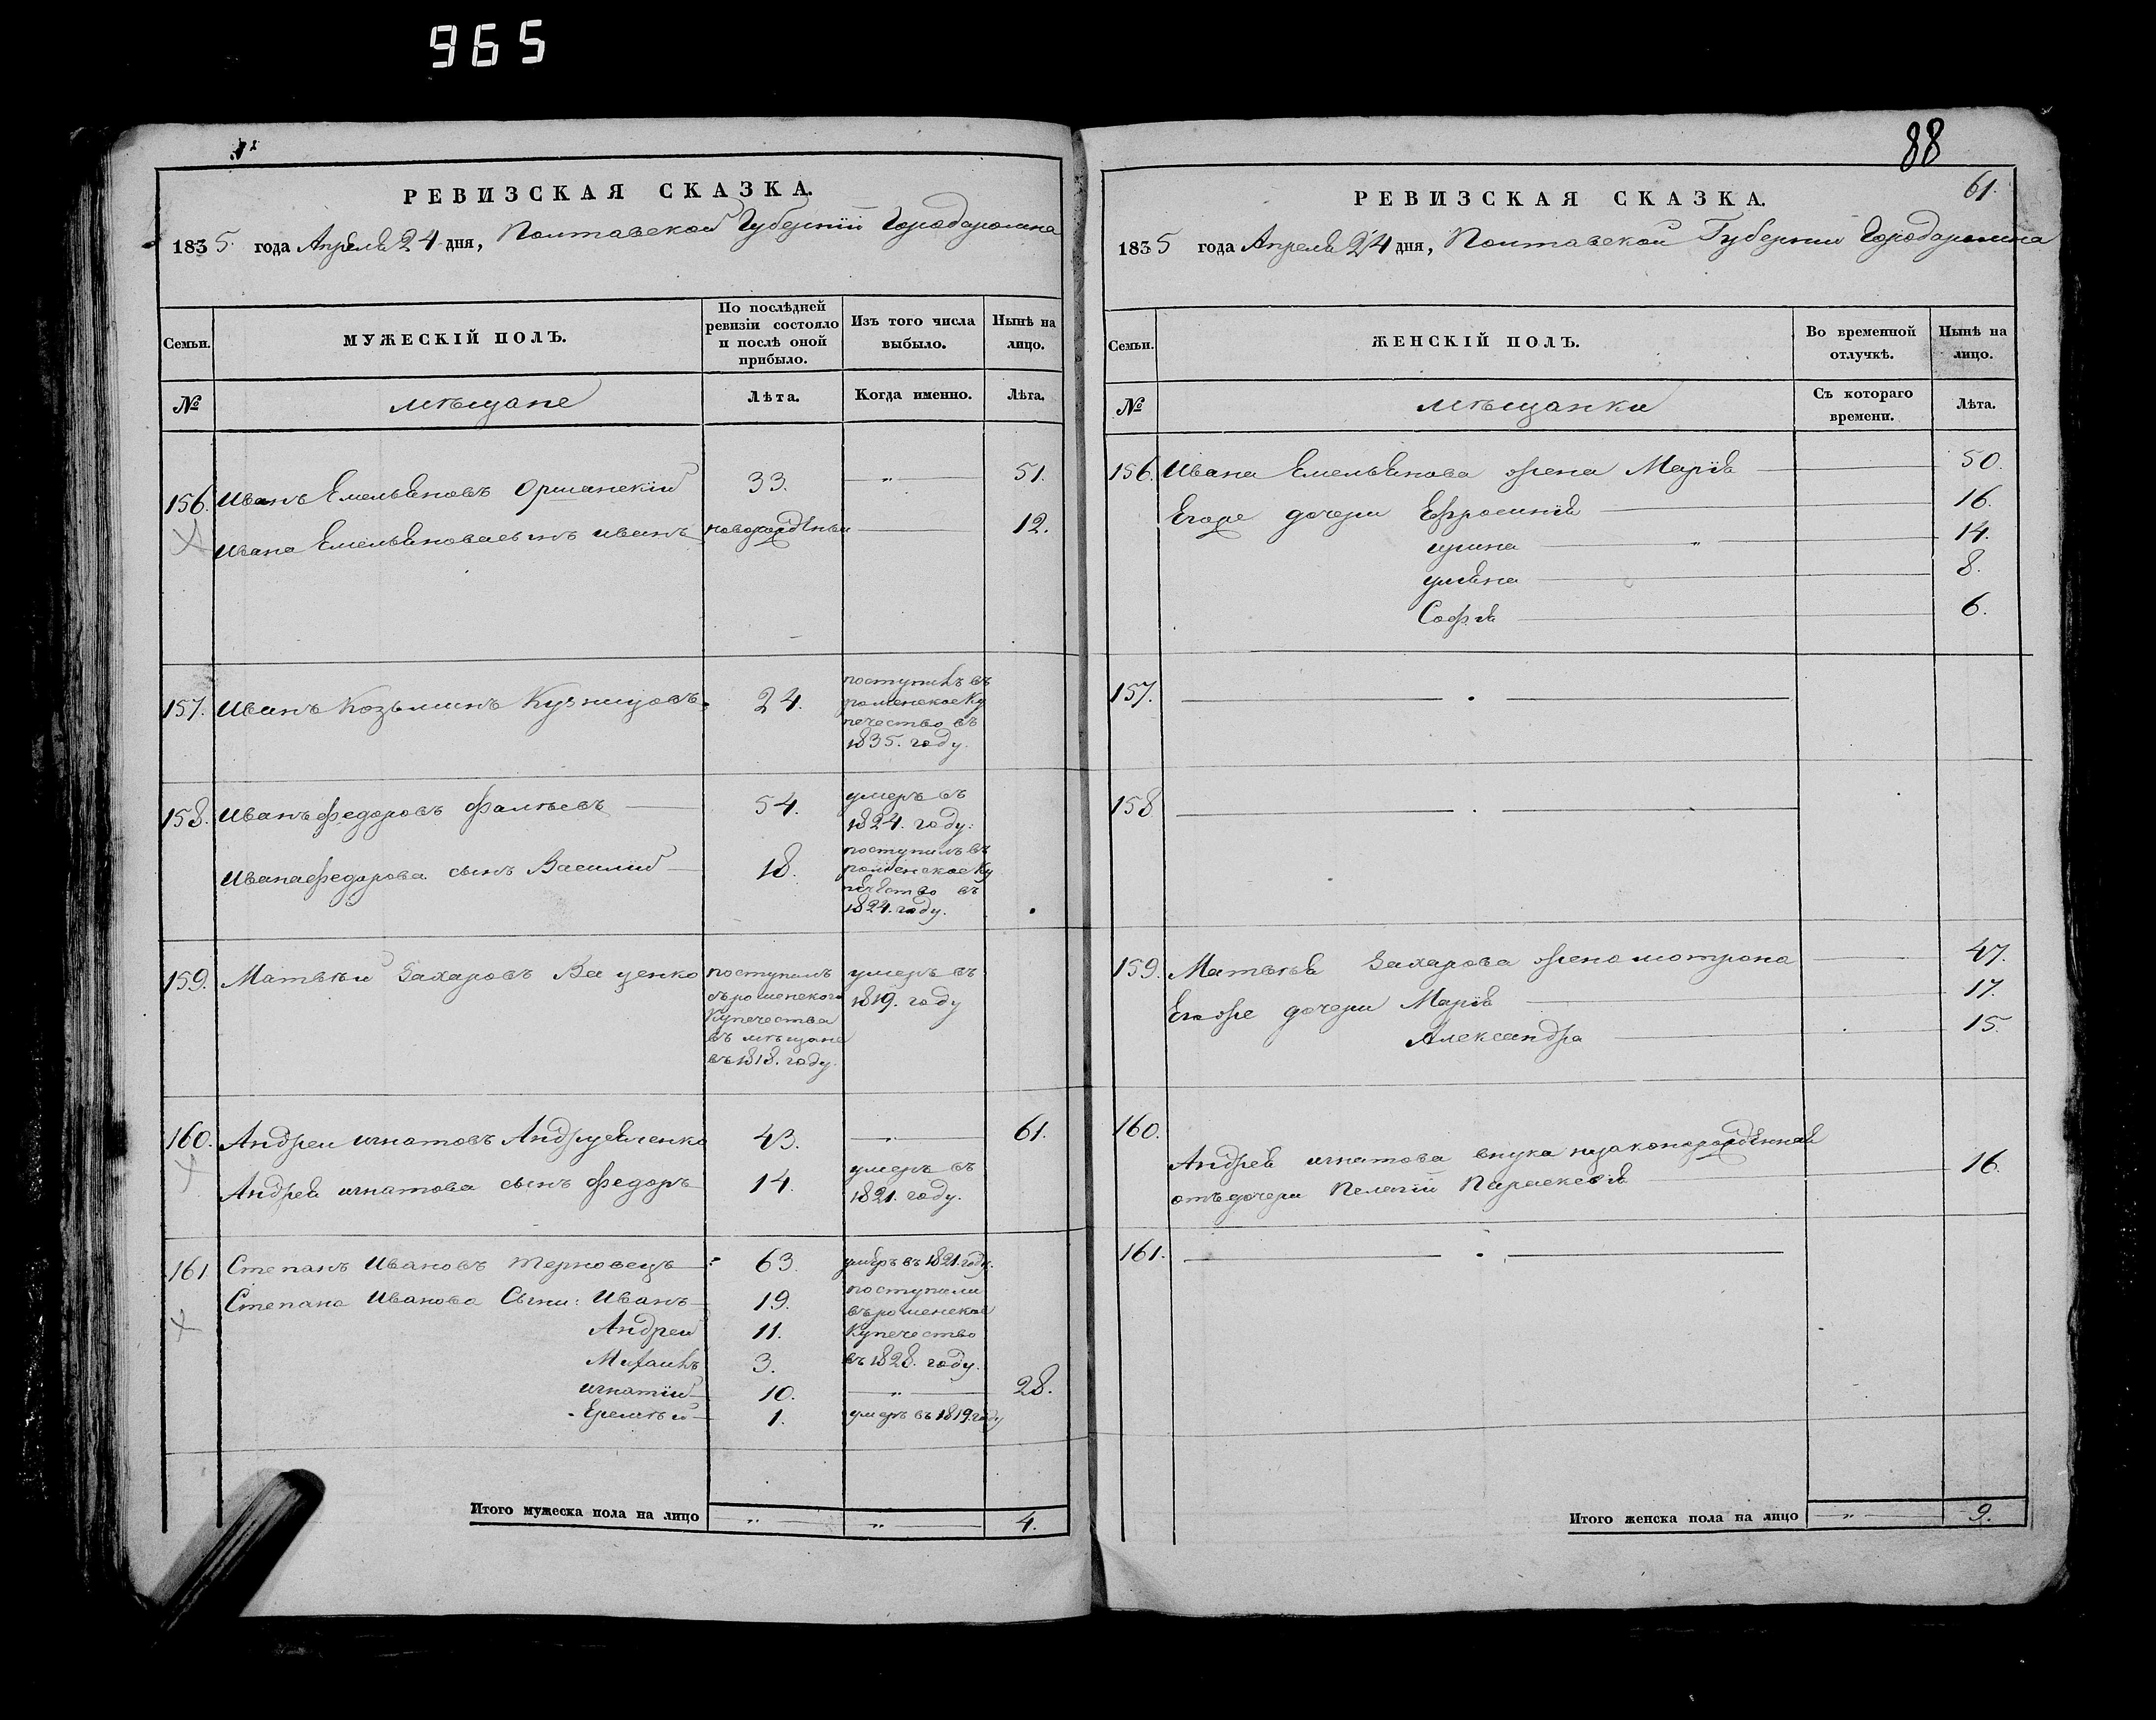 965
РЕВИЗСКАЯ СКАЗКА.
1835. года Апреля 24 дня, Полтавской Губернїи Города ромна
Семьи. МУЖЕСКІЙ ПОЛЪ. По послѣдней ревизіи состояло и послѣ оной прибыло. Изъ того числа выбыло. Нынѣ на лицо.
№ мѣщане Лѣта. Когда именно. Лѣта.
156. Иванъ Емельяновъ Оршанскїй 33. „ 51.
Ивана Емельянова сынъ иванъ новорожденый 12.
157. Иванъ Козьминъ Кузницовъ 24. поступилъ въ
роменское Ку
печество въ
1835. году.
158. Иванъ федоровъ Фалѣевъ 54. умеръ въ
1824. году.
Ивана федорова сынъ Василий 18. поступилъ въ
роменское Ку
печество въ
1824. году.
159. Матвѣй Захаровъ Ваценко поступилъ умеръ въ
съроменского 1819. году
Купечества
въ мѣщане
въ 1818. году.
160. Андреи игнатовъ Андруевченко 43. „ 61.
Андрея игнатова сынъ Федоръ 14. умеръ въ
1821. году.
161 Степанъ Ивановъ Терновецъ 63. умеръ въ 1821. году.
Степана Иванова Сыни: Иванъ 19. поступили
въроменское
Андрей 11. Купечество
Михаилъ 3. въ 1828. году.
игнатїй 10. „ 28.
Еремѣй 1. умеръ въ 1819. году
Итого мужеска пола на лицо „ „ 4.
88
61.
РЕВИЗСКАЯ СКАЗКА.
1835 года Апреля 24 дня, Полтавской Губернии Города ромна
Семьи. ЖЕНСКІЙ ПОЛЪ. Во временной отлучкѣ. Нынѣ на лицо.
№ мѣщанки Съ котораго времени. Лѣта.
156. Ивана Емельянова жена Марїя 50.
Егоже дочери Ефросинїя 16.
ирина „ 14.
улияна 8.
Софїя 6.
157.
158
159. Матвѣя Захарова жена мотрона 47.
Егоже дочери Марїя 17.
Александра 15.
160.
Андрея игнатова внука нізаконорожденная
отъдочери Пелагїи Параскевїя 16.
161.
Итого женска пола на лицо „ 9.